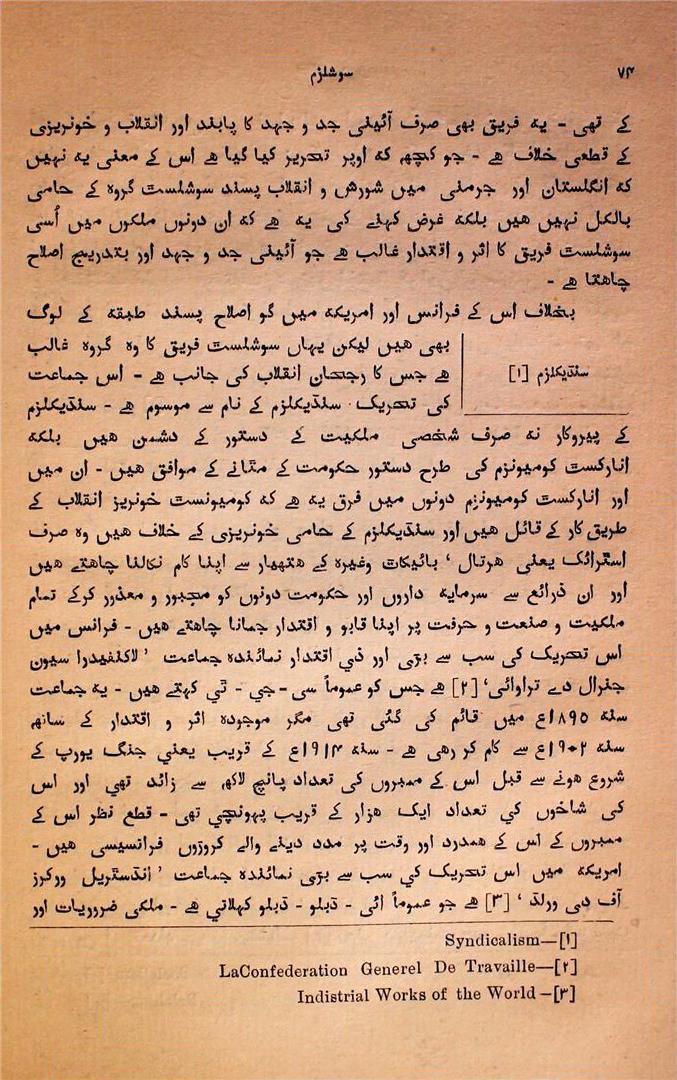 ۷۴ سوشلزم
کے تھی - یہ فریق بھی صرف آئینی جد و جہد کا پابند اور انقلاب و خونریزی
کے قطعی خلاف ہے - جو کچھہ کہ اوپر تحریر کیا گیا ہے اس کے معنی یہ نہیں
کہ انگلستان اور جرمنی میں شورش و انقلاب پسند سوشلسٹ گروہ کے حامی
بالکل نہیں ھیں بلکہ غرض کہنے کی یہ ھے کہ ان دونوں ملکوں میں اُسی
سوشلسٹ فریق کا اثر و اقتدار غالب ھے جو آئینی جد و جہد اور بتدریج اصلاح
چاھتا ھے -
بخلاف اس کے فرانس اور امریکہ میں گو اصلاح پسند طبقہ کے لوگ
بھی ھیں لیکن یہاں سوشلسٹ فریق کا وہ گروہ غالب
سنڈیکلزم [۱]
ھے جس کا رجحان انقلاب کی جانب ھے - اس جماعت
کی تحریک سنڈیکلزم کے نام سے موسوم ھے - سنڈیکلزم
کے پیروکار نہ صرف شخصی ملکیت کے دستور کے دشمن ھیں بلکہ
انارکسٹ کومیونزم کی طرح دستور حکومت کے مٹانے کے موافق ھیں - ان میں
اور انارکسٹ کومیونزم دونوں میں فرق یہ ھے کہ کومیونسٹ خونریز انقلاب کے
طریق کار کے قائل ھیں اور سنڈیکلزم کے حامی خونریزی کے خلاف ھیں وہ صرف
اسٹرائک یعنی ھرتال ' بائیکاٹ وغیرہ کے ھتھیار سے اپنا کام نکالنا چاھتے ھیں
اور ان ذرائع سے سرمایہ داروں اور حکومت دونوں کو مجبور و معذور کرکے تمام
ملکیت و صنعت و حرفت پر اپنا قابو و اقتدار جمانا چاھتے ھیں - فرانس میں
اس تحریک کی سب سے بڑی اور ذی اقتدار نمائندہ جماعت ' لاکنفیڈرا سیون
جنرال دے تراوائی' [۲] ھے جس کو عموماً سی - جی - ٹی کہتے ھیں - یہ جماعت
سنہ ۱۸۹۵ع میں قائم کی گئی تھی مگر موجودہ اثر و اقتدار کے ساتھہ
سنہ ۱۹۰۲ع سے کام کر رھی ھے - سنہ ۱۹۱۴ع کے قریب یعنی جنگ یورپ کے
شروع ھونے سے قبل اس کے ممبروں کی تعداد پانچ لاکھہ سے زائد تھی اور اس
کی شاخوں کی تعداد ایک ھزار کے قریب پہونچی تھی - قطع نظر اس کے
ممبروں کے اس کے ھمدرد اور وقت پر مدد دینے والے کروڑوں فرانسیسی ھیں -
امریکہ میں اس تحریک کی سب سے بڑی نمائندہ جماعت ' انڈسٹریل ورکرز
آف دی ورلڈ ' [۳] ھے جو عموماً ائی - ڈبلو - ڈبلو کہلاتی ھے - ملکی ضروریات اور
Syndicalism—[۱]
LaConfederation Generel De Travaille—[۲]
Indistrial Works of the World—[۳]